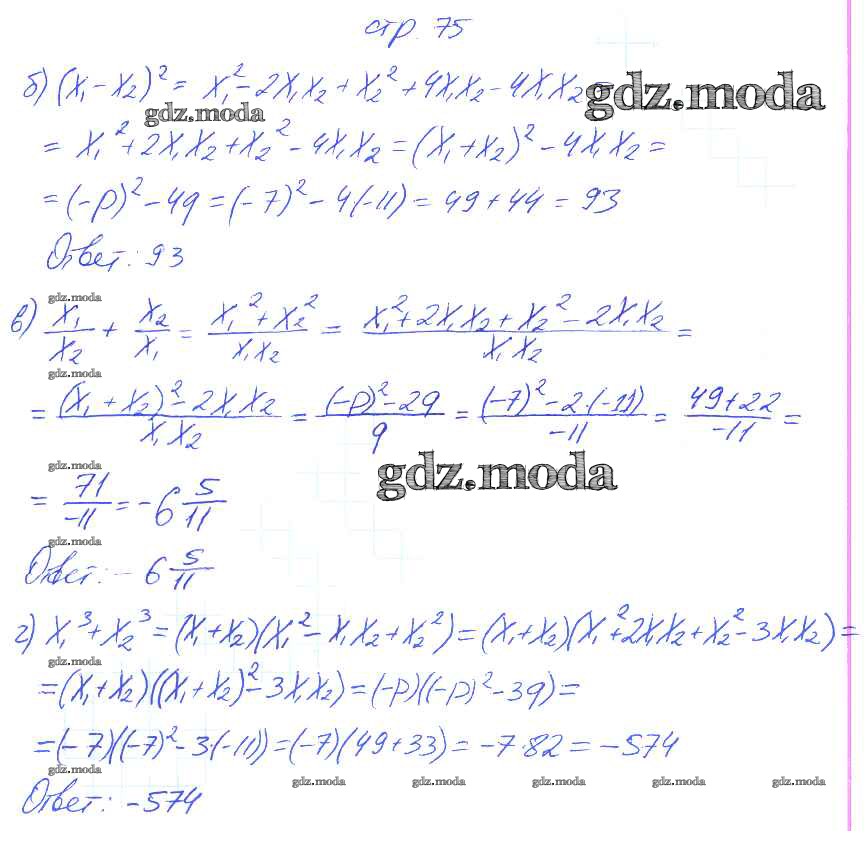 стр. 75
б) (x₁ - x₂)² = x₁² - 2x₁x₂ + x₂² + 4x₁x₂ - 4x₁x₂ =
gdz.moda
gdz.moda
= x₁² + 2x₁x₂ + x₂² - 4x₁x₂ = (x₁ + x₂)² - 4x₁x₂ =
= (-p)² - 4q = (-7)² - 4(-11) = 49 + 44 = 93
Ответ: 93
gdz.moda
в) x₁/x₂ + x₂/x₁ = (x₁² + x₂²)/(x₁x₂) = (x₁² + 2x₁x₂ + x₂² - 2x₁x₂)/(x₁x₂) =
gdz.moda
= ((x₁ + x₂)² - 2x₁x₂)/(x₁x₂) = ((-p)² - 2q)/q = ((-7)² - 2·(-11))/(-11) = (49 + 22)/(-11) =
gdz.moda
gdz.moda
= 71/(-11) = -6 5/11
gdz.moda
Ответ: -6 5/11
г) x₁³ + x₂³ = (x₁ + x₂)(x₁² - x₁x₂ + x₂²) = (x₁ + x₂)(x₁² + 2x₁x₂ + x₂² - 3x₁x₂) =
gdz.moda
= (x₁ + x₂)((x₁ + x₂)² - 3x₁x₂) = (-p)((-p)² - 3q) =
= (-7)((-7)² - 3(-11)) = (-7)(49 + 33) = -7·82 = -574
gdz.moda
gdz.moda gdz.moda gdz.moda gdz.moda gdz.moda
Ответ: -574